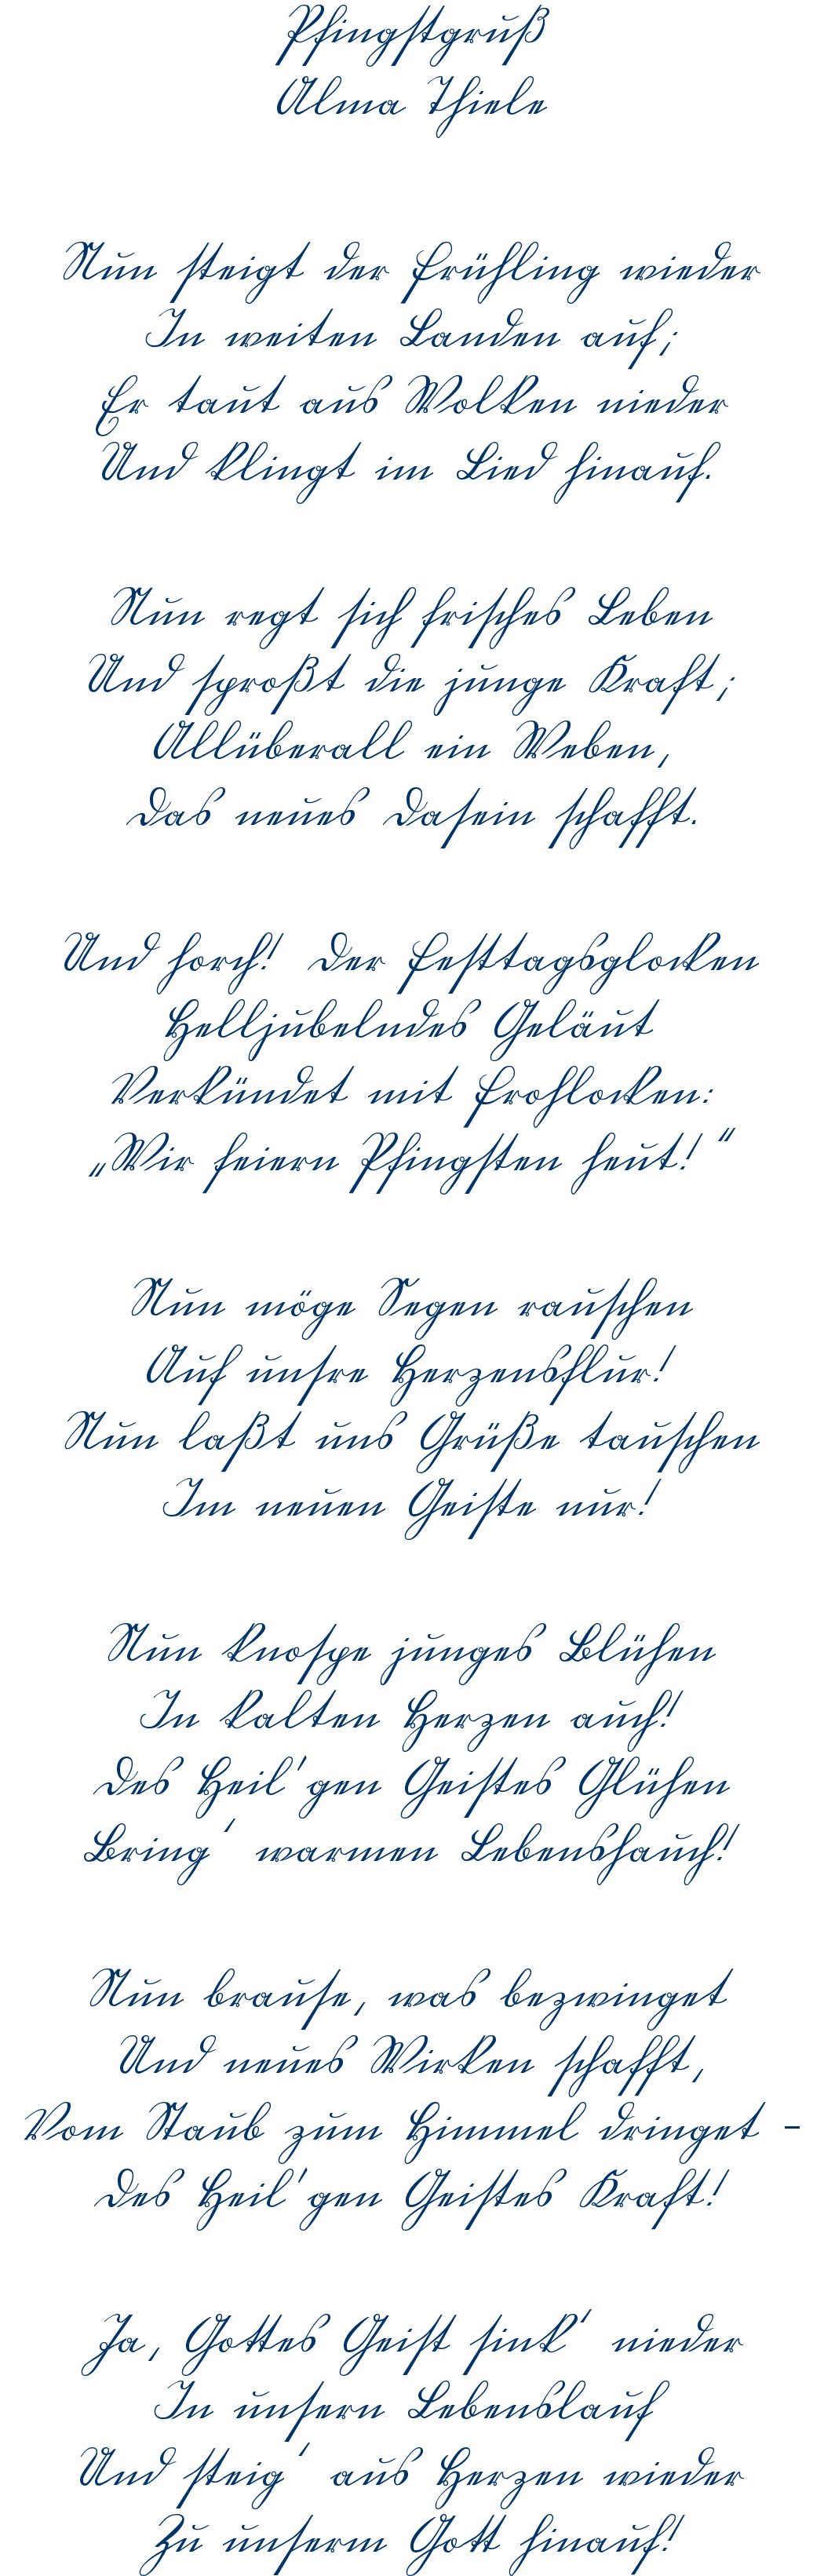 Pfingstgruß
Alma Thiele
Nun steigt der Frühling wieder
In weiten Landen auf;
Er taut aus Wolken nieder
Und klingt im Lied hinauf.
Nun regt sich frisches Leben
Und sproßt die junge Kraft;
Allüberall ein Weben,
Das neues Dasein schafft.
Und horch! Der Festtagsglocken
Helljubelndes Geläut
Verkündet mit Frohlocken:
„Wir feiern Pfingsten heut!“
Nun möge Segen rauschen
Auf unsre Herzensflur!
Nun laßt uns Grüße tauschen
Im neuen Geiste nur!
Nun knospe junges Blühen
In kalten Herzen auch!
Des Heil'gen Geistes Glühen
Bring' warmen Lebenshauch!
Nun brause, was bezwinget
Und neues Wirken schafft,
Vom Staub zum Himmel dringet -
Des Heil'gen Geistes Kraft!
Ja, Gottes Geist sink' nieder
In unsern Lebenslauf
Und steig' aus Herzen wieder
Zu unserm Gott hinauf!